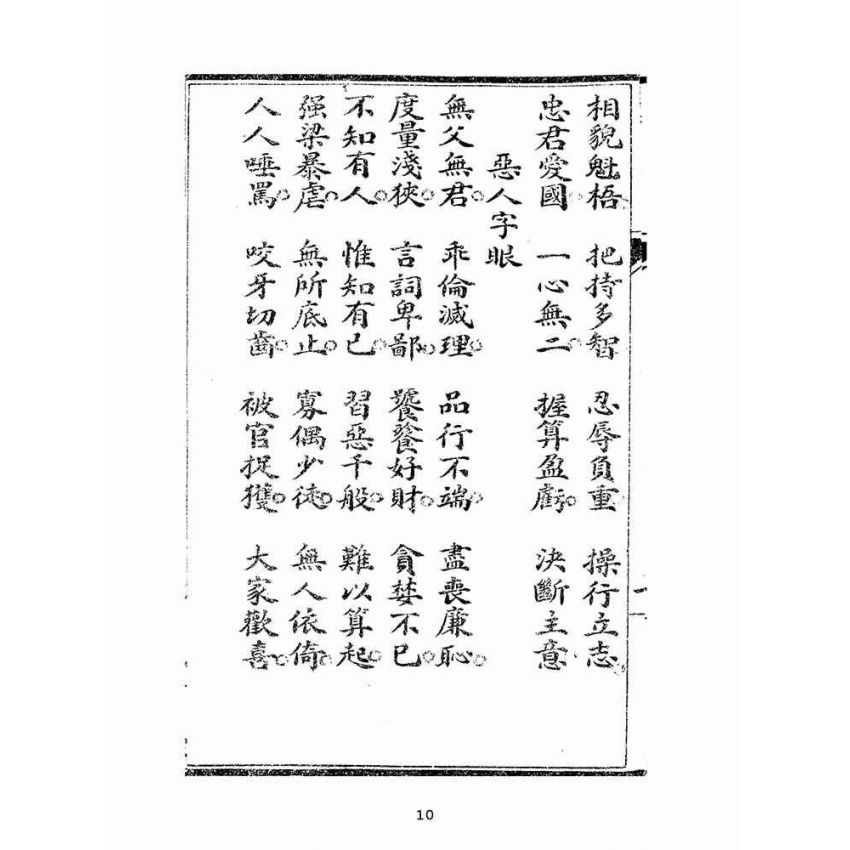 相貌魁梧 把持多智 忍辱負重 操行立志
忠君愛國 一心無二 握算盈虧 決斷主意
惡人字眼
無父無君 乖倫滅理 品行不端 盡喪廉恥
度量淺狹 言詞卑鄙 饕餮好財 貪婪不已
不知有人 惟知有己 習惡千般 難以算起
强梁暴虐 無所底止 寡偶少徒 無人依倚
人人唾罵 咬牙切齒 被官捉獲 大家歡喜
10